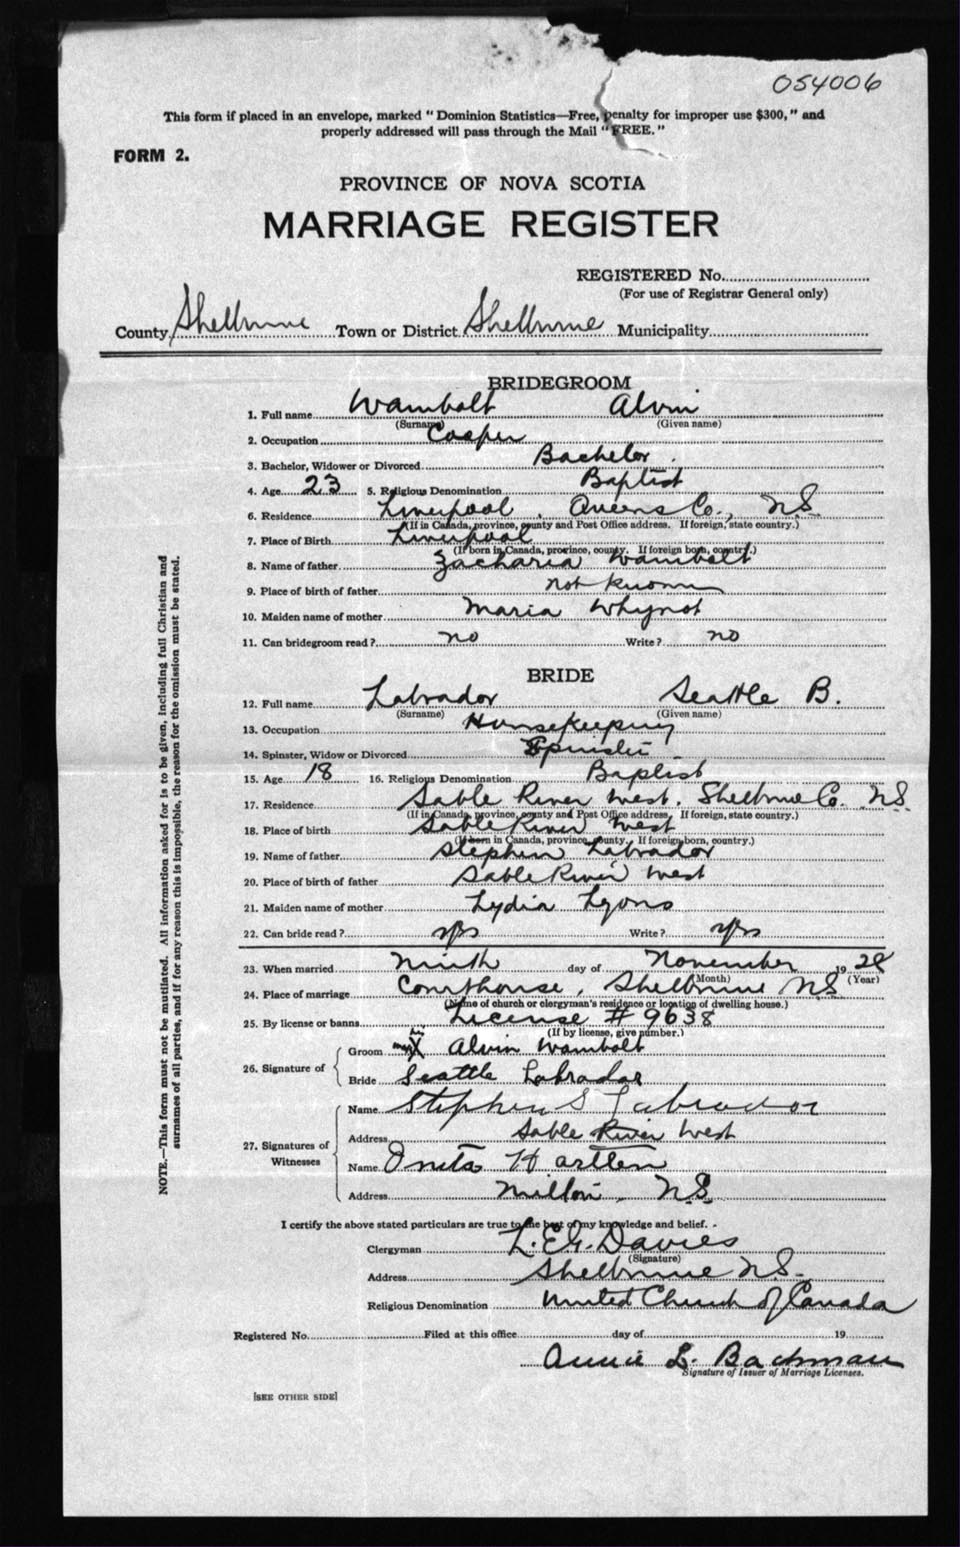 054006
This form if placed in an envelope, marked "Dominion Statistics—Free, penalty for improper use $300," and
properly addressed will pass through the Mail "FREE."
FORM 2.
PROVINCE OF NOVA SCOTIA
MARRIAGE REGISTER
REGISTERED No.
(For use of Registrar General only)
County Shelburne Town or District Shelburne Municipality
BRIDEGROOM
1. Full name Wambolt Alvin
(Surname) (Given name)
2. Occupation Cooper
3. Bachelor, Widower or Divorced Bachelor.
4. Age 23 5. Religious Denomination Baptist
6. Residence Liverpool, Queens Co., N.S.
(If in Canada, province, county and Post Office address. If foreign, state country.)
7. Place of Birth Liverpool
(If born in Canada, province, county. If foreign born, country.)
8. Name of father Zacharia Wambolt
9. Place of birth of father not known
10. Maiden name of mother Maria Whynot
11. Can bridegroom read? no Write? no
BRIDE
12. Full name Labrador Seattle B.
(Surname) (Given name)
13. Occupation Housekeeping
14. Spinster, Widow or Divorced Spinster
15. Age 18 16. Religious Denomination Baptist
17. Residence Sable River West, Shelburne Co. N.S.
(If in Canada, province, county and Post Office address. If foreign, state country.)
18. Place of birth Sable River West
(If born in Canada, province, county. If foreign born, country.)
19. Name of father Stephen Labrador
20. Place of birth of father Sable River West
21. Maiden name of mother Lydia Lyons
22. Can bride read? yes Write? yes
23. When married Ninth day of November 1928
(Month) (Year)
24. Place of marriage Courthouse, Shelburne N.S.
(Name of church or clergyman's residence or location of dwelling house.)
25. By license or banns License # 9638
(If by license, give number.)
26. Signature of
Groom his X Alvin Wambolt
Bride Seattle Labrador
27. Signatures of Witnesses
Name Stephen S Labrador
Address Sable River West
Name Onita Hartlen
Address Milton, N.S.
I certify the above stated particulars are true to the best of my knowledge and belief.
Clergyman L. E. G. Davies
(Signature)
Address Shelburne N.S.
Religious Denomination United Church of Canada
Registered No. Filed at this office day of 19
Annie L. Bachman
Signature of Issuer of Marriage Licenses.
[SEE OTHER SIDE]
NOTE.—This form must not be mutilated. All information asked for is to be given, including full Christian and
surnames of all parties, and if for any reason this is impossible, the reason for the omission must be stated.